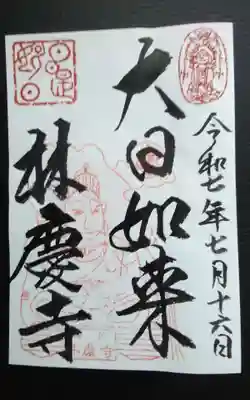 令和七年七月十六日
大日如来
林慶寺